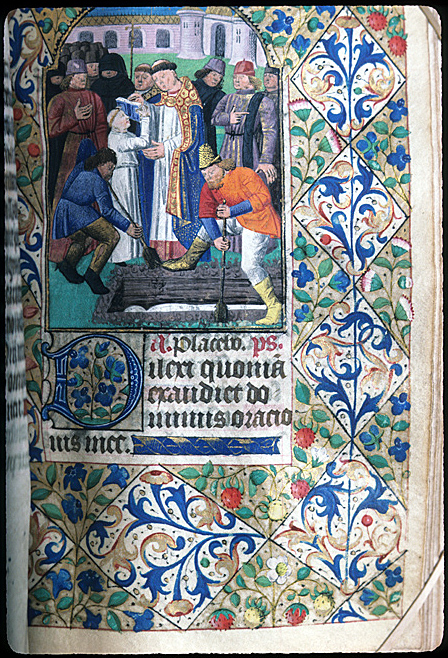 A. Placebo. ps.
Dilexi quoniã
exaudiet do
minus oracio
nis mee.